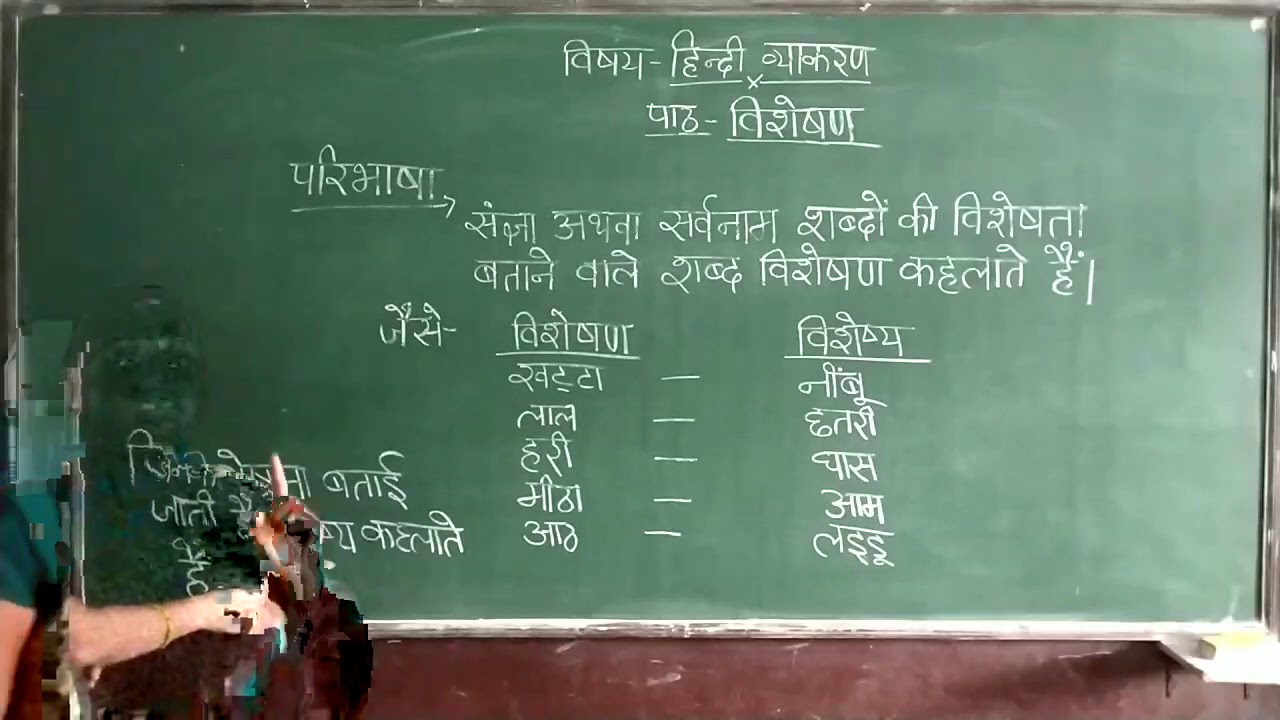 विषय- हिन्दी व्याकरण
×
पाठ- विशेषण
परिभाषा →
संज्ञा अथवा सर्वनाम शब्दों की विशेषता
बताने वाले शब्द विशेषण कहलाते हैं।
जैसे- विशेषण विशेष्य
खट्टा — नींबू
लाल — छतरी
हरी — घास
मीठा — आम
आठ — लड्डू
बताई
जाती कहलाते